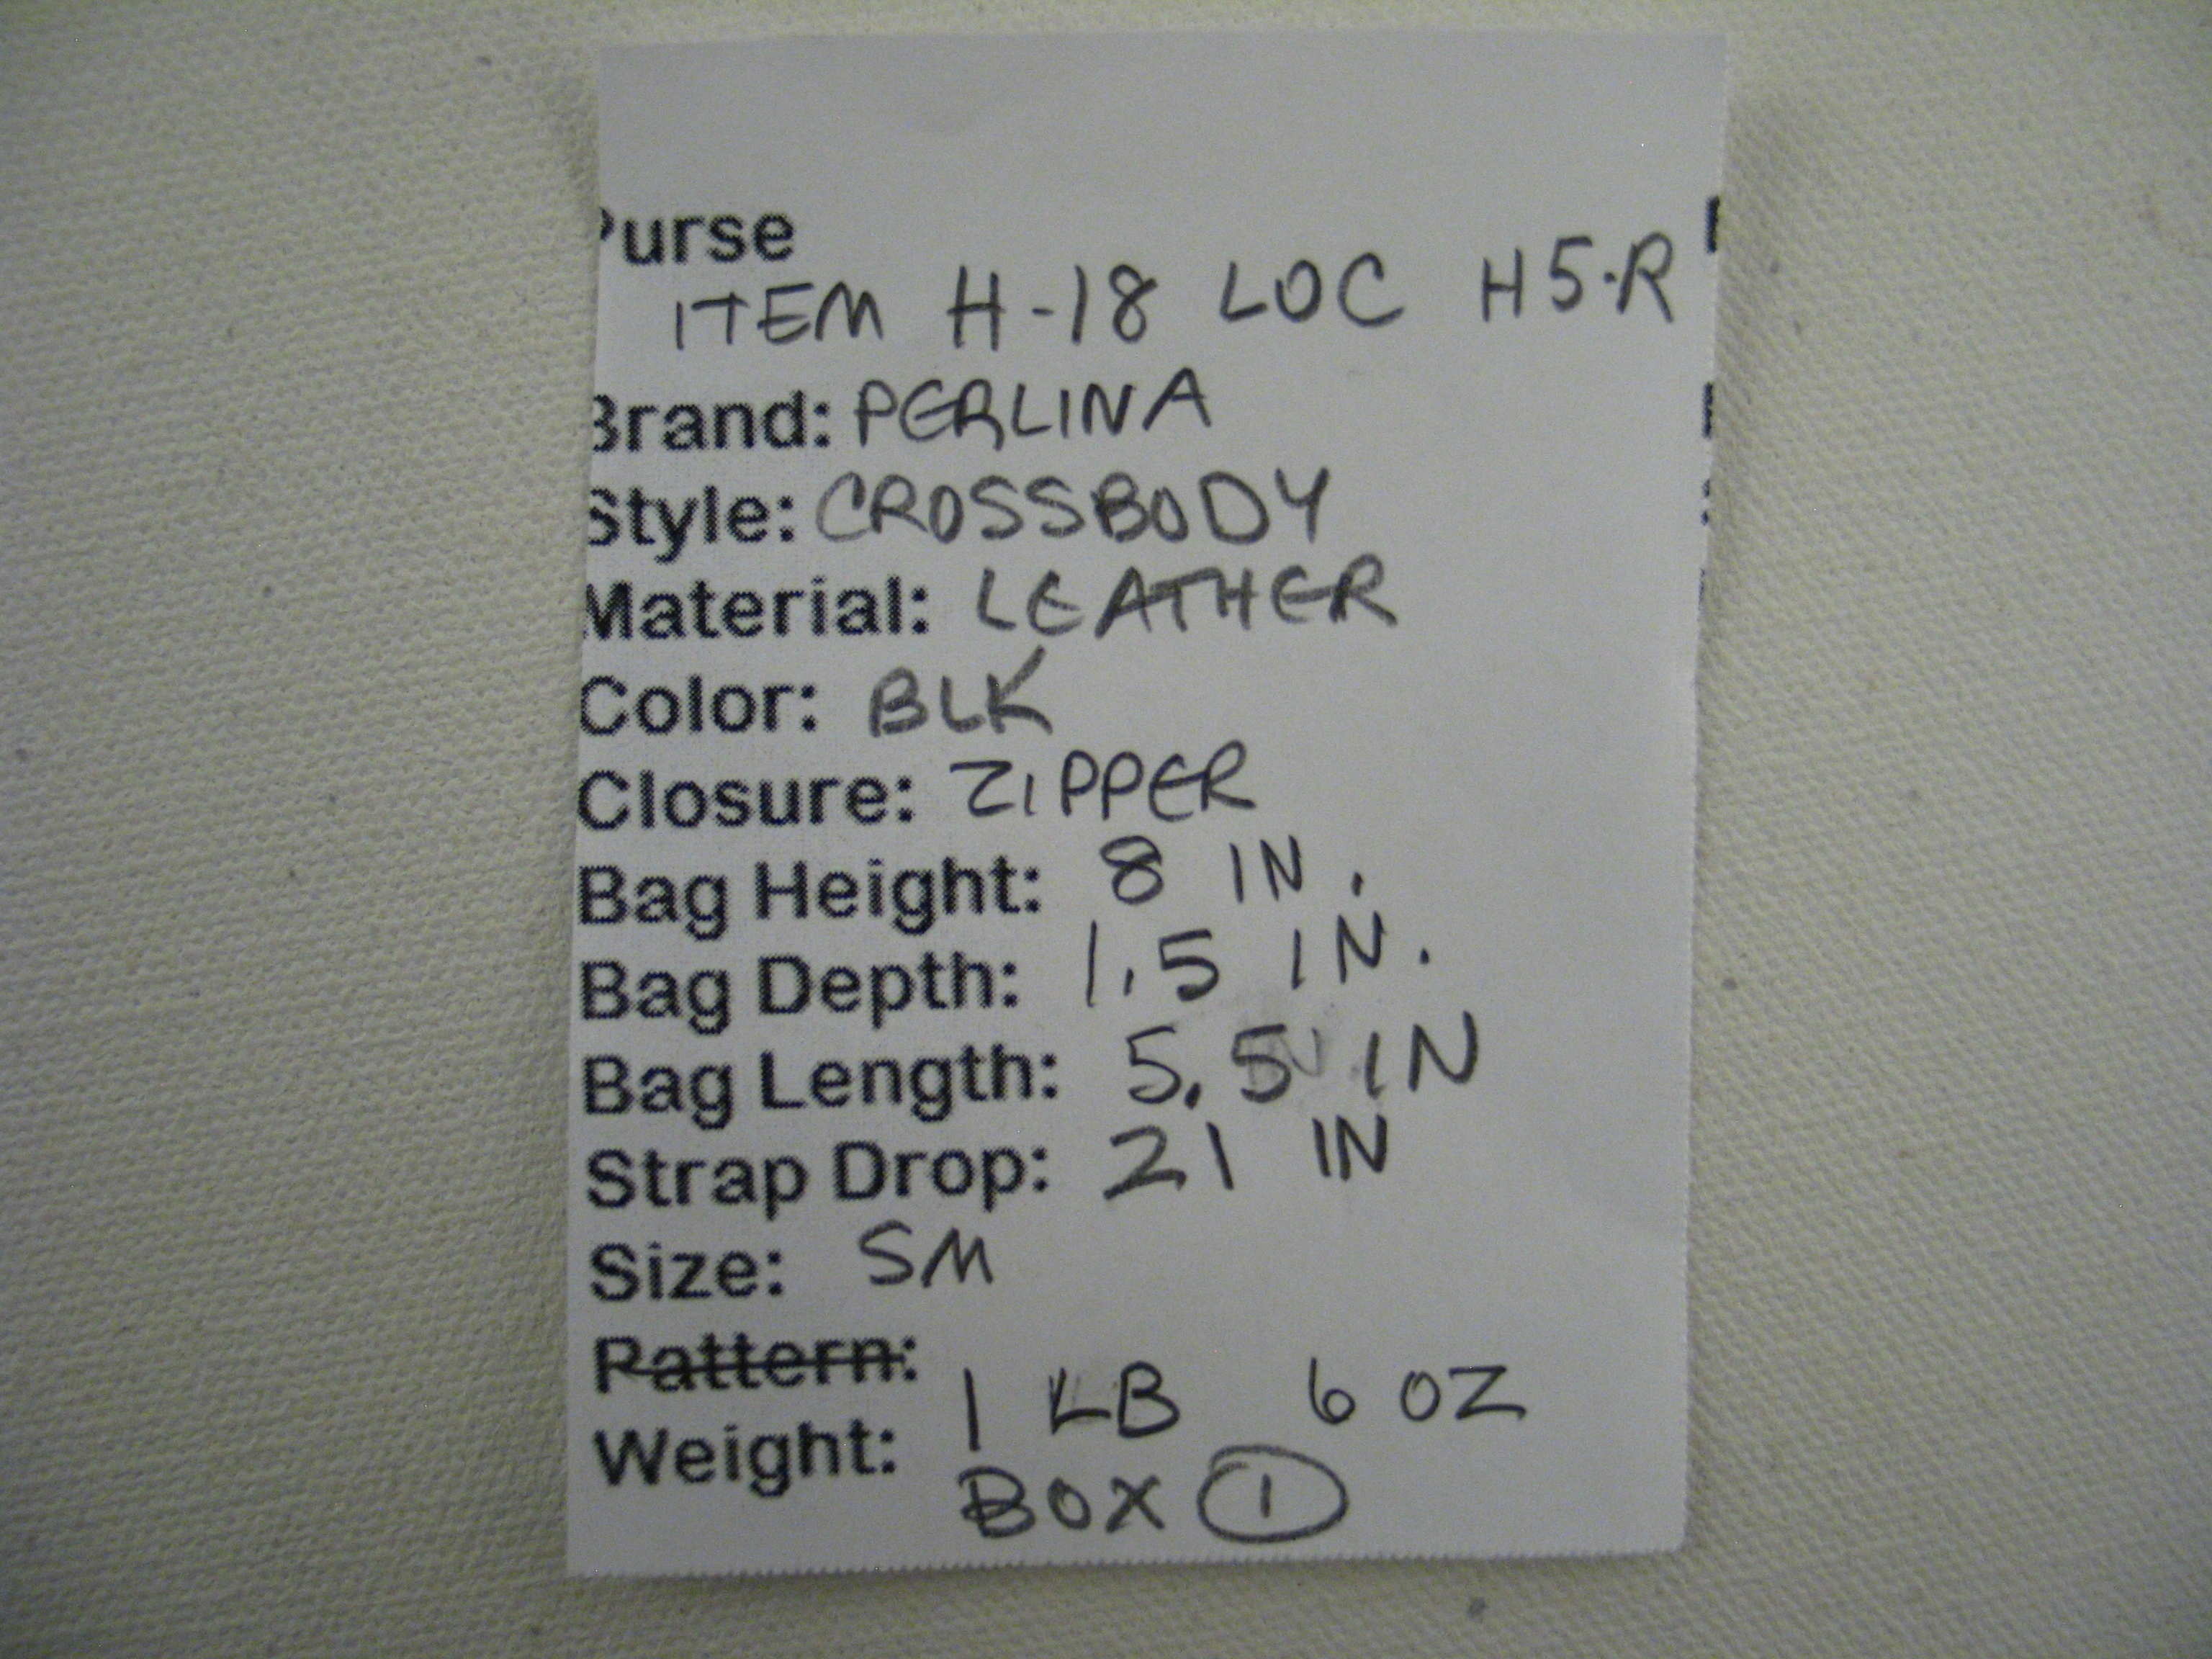 Purse
ITEM H-18 LOC H5-R
Brand: PERLINA
Style: CROSSBODY
Material: LEATHER
Color: BLK
Closure: ZIPPER
Bag Height: 8 IN.
Bag Depth: 1.5 IN.
Bag Length: 5.5 IN
Strap Drop: 21 IN
Size: SM
Pattern:
Weight: 1 LB 6 OZ
BOX 1